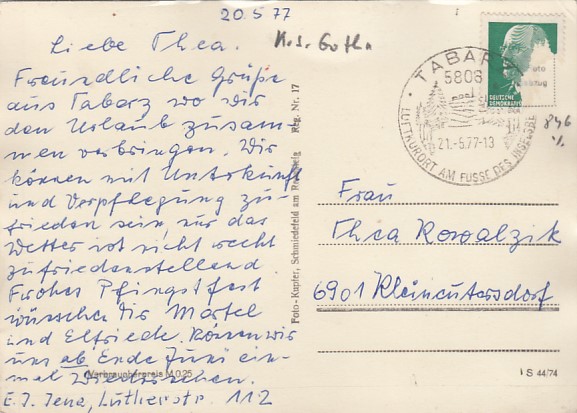 20.5.77
Liebe Thea.
Krs. Gotha
Freundliche Grüße
aus Tabarz wo wir
den Urlaub zusam-
men verbringen. Wir
können mit Unterkunft
und Verpflegung zu-
frieden sein, nur das
Wetter ist nicht recht
zufriedenstellend
Frohes Pfingstfest
wünschen Dir Martel
und Elfriede. Können wir
uns ab Ende Juni ein-
mal Wiedersehen.
Verbraucherpreis M 0,25
E. J. Jena, Lutherstr. 112
Foto-Kupfer, Schmiedefeld am Rennsteig Reg. Nr. 17
DEUTSCHE
DEMOKRATISCHE
TABARZ
5808
21.-5.77-13
LUFTKURORT AM FUSSE DES INSELSBERG
846
Frau
Thea Kowalzik
6901 Kleineutersdorf
I S 44/74